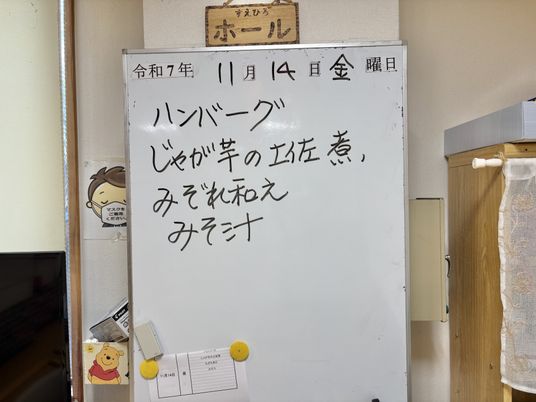 すえひろ
ホール
令和7年 11月 14日 金 曜日
ハンバーグ
じゃが芋の土佐煮、
みぞれ和え
みそ汁
マスクを
ご着用
ください
11月14日